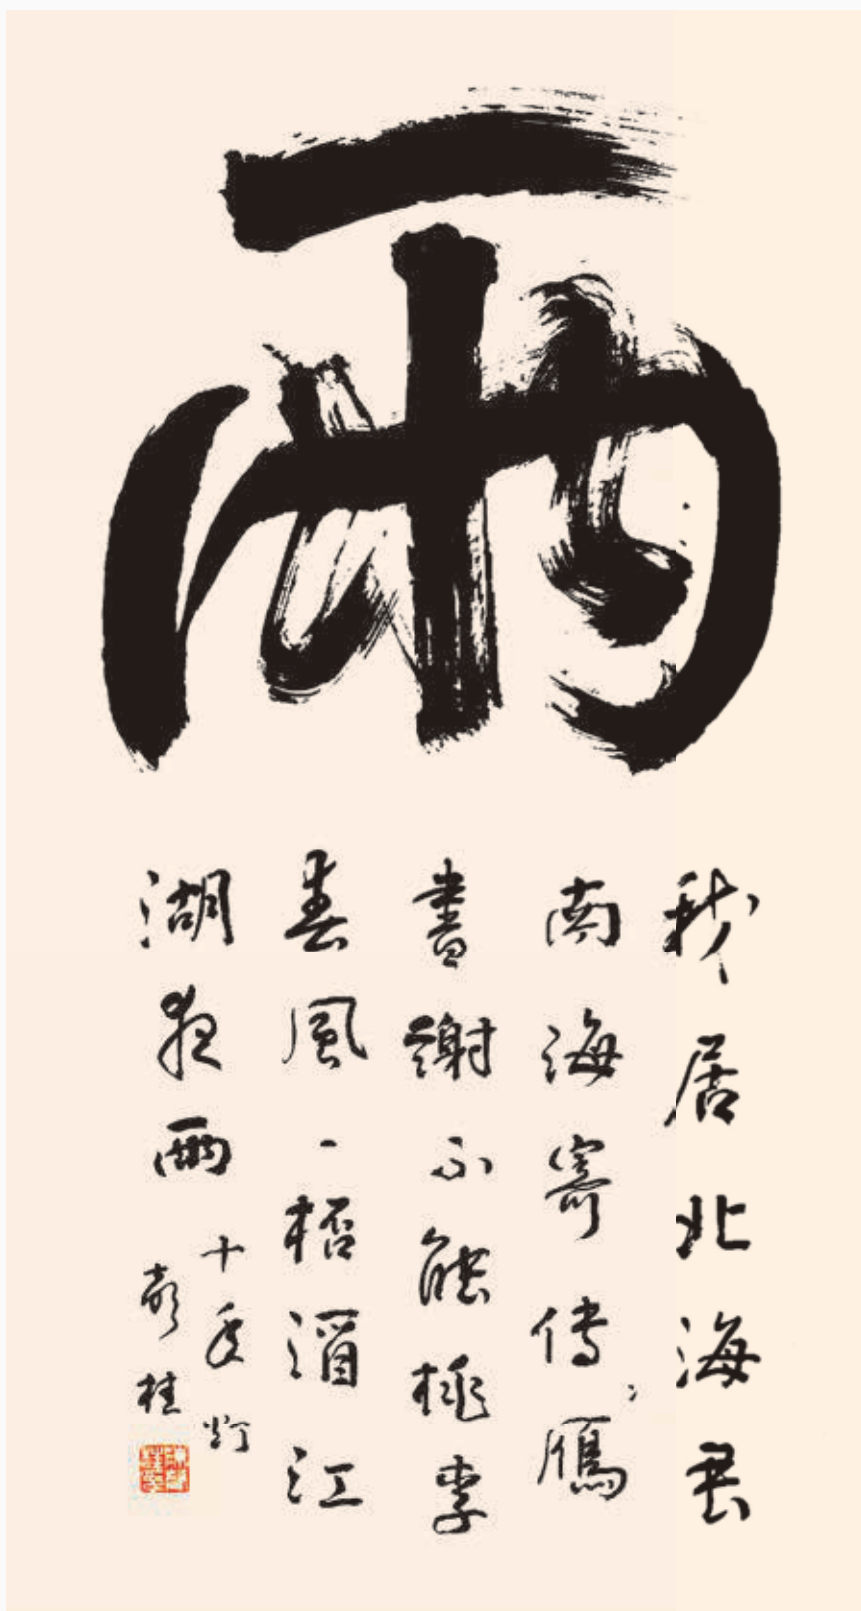 雨
我居北海君
南海寄傳雁
書謝不能桃李
春風一桮酒江
湖夜雨
十年灯
桂